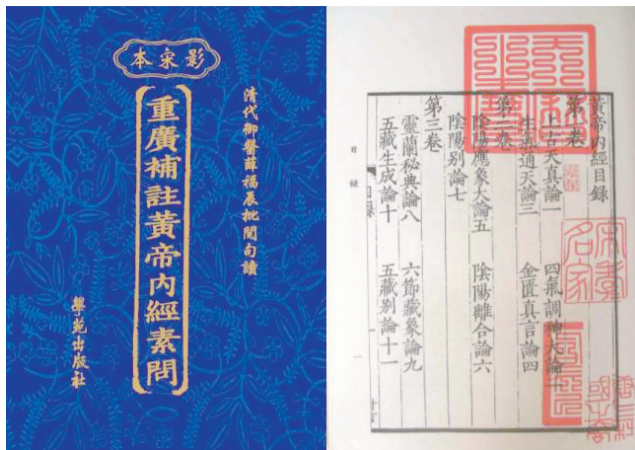 影宋本
清代御醫薛福辰批閱句讀
重廣補註黃帝內經素問
學苑出版社
黃帝內經目錄
第一卷
上古天真論一 四氣調神大論二
生氣通天論三 金匱真言論四
第二卷
陰陽應象大論五 陰陽離合論六
陰陽别論七
第三卷
靈蘭秘典論八 六節藏象論九
五藏生成論十 五藏别論十一
目錄